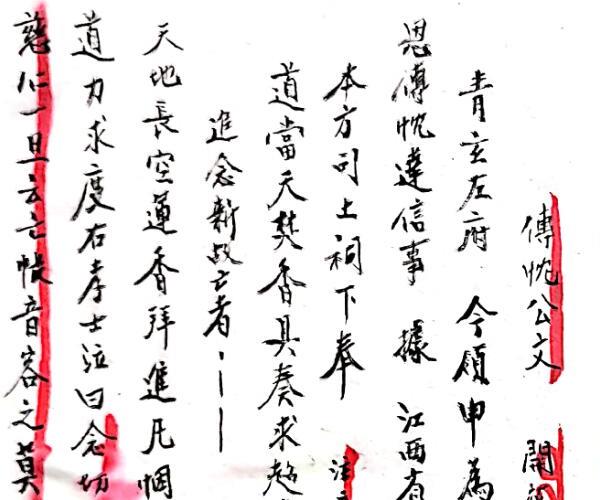 傳忱公文 開
青玄左府 今領申為
恩傳忱達信事 據 江西省
本方司土祠下奉
道當天焚香具奏求超
追念新故亡者
天地長空運香拜進凡悃
道力求度右孝士泣曰念切
慈仁一旦云亡悵音容之莫